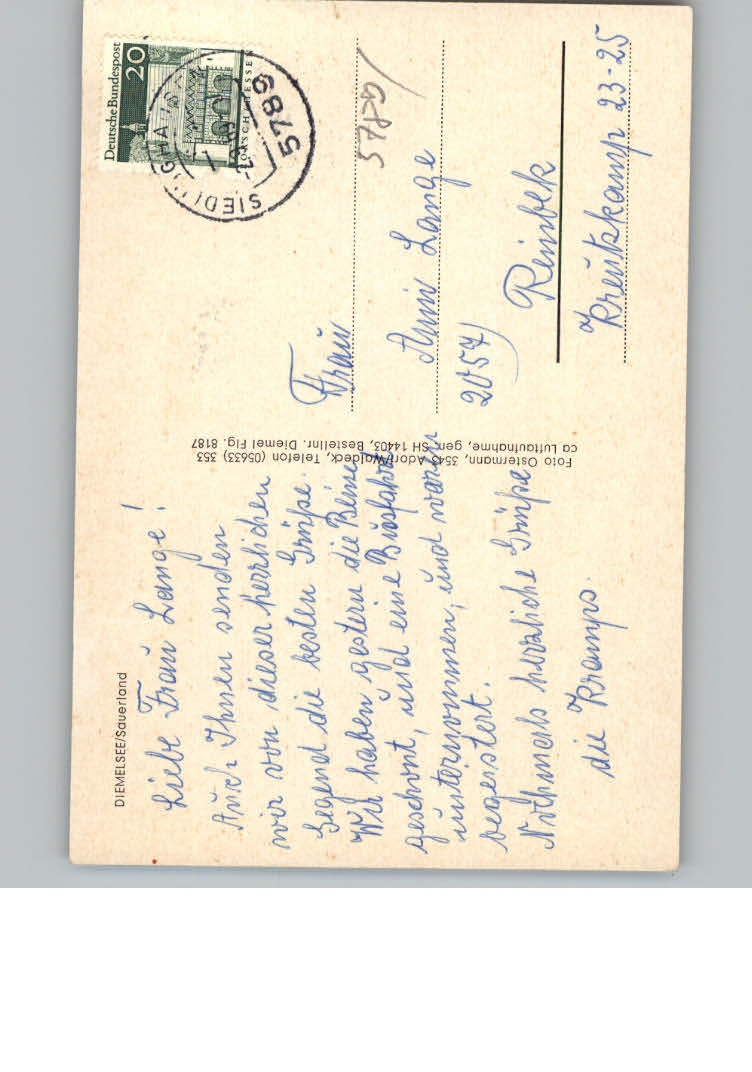 DIEMELSEE/Sauerland
Liebe Frau Lange!
Auch Ihnen senden
wir von dieser herrlichen
Gegend die besten Grüße.
Wir haben gestern die Beine
geschont, und eine Busfahrt
unternommen, und waren
begeistert.
Nochmals herzliche Grüße
die Kramps.
Foto Ostermann, 3543 Adorf/Waldeck, Telefon (05633) 353
ca Luftaufnahme, gen. SH 14403, Bestellnr. Diemel Flg. 8187
Deutsche Bundespost
20
LORSCH/HESSEN
5789
SIEDLINGHA
5789/
Frau
Anni Lange
2057)
Reinbek
Kreutzkamp 23-25